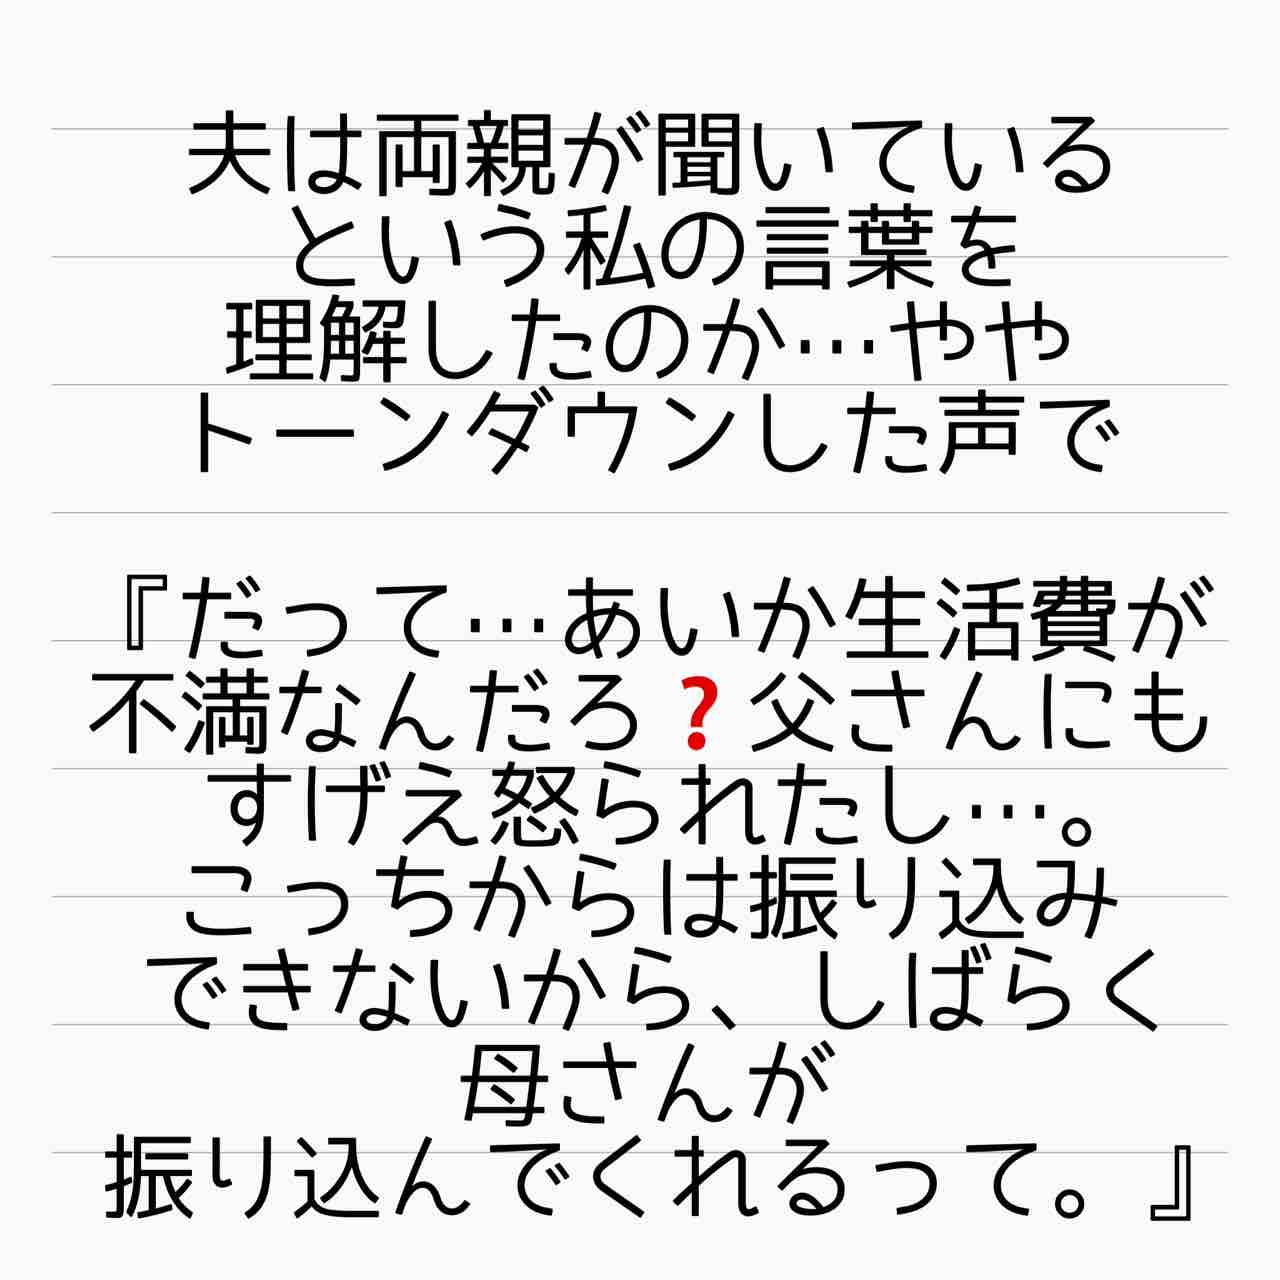 夫は両親が聞いている
という私の言葉を
理解したのか…やや
トーンダウンした声で
『だって…あいか生活費が
不満なんだろ❓父さんにも
すげえ怒られたし…。
こっちからは振り込み
できないから、しばらく
母さんが
振り込んでくれるって。』